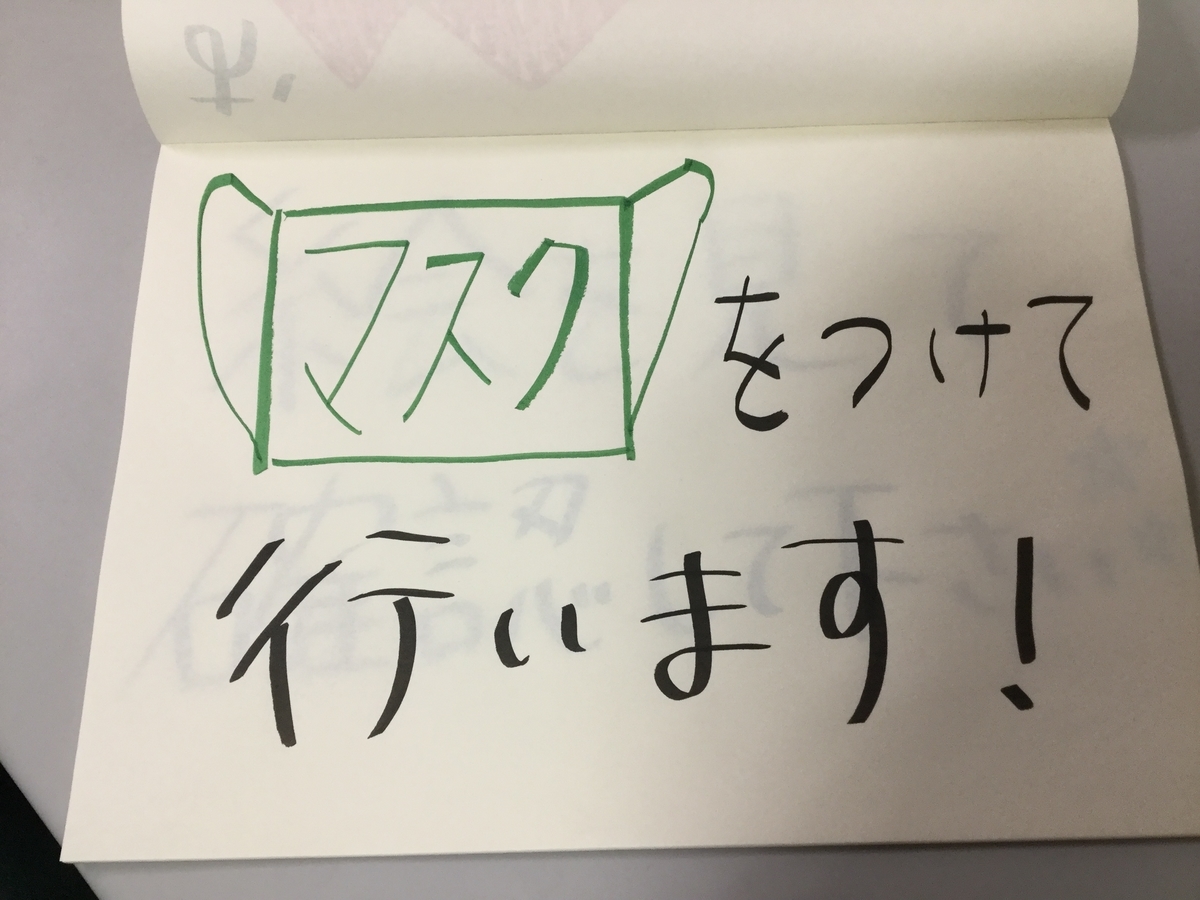 マスクをつけて
行います!